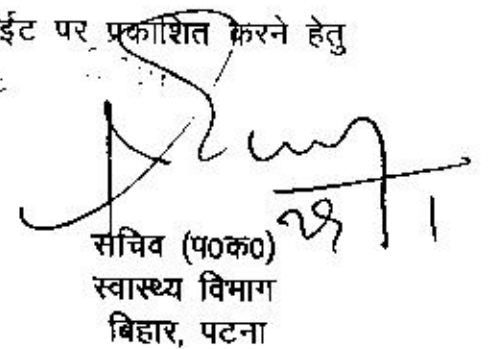 ईट पर प्रकाशित करने हेतु
सचिव (प०क०)
स्वास्थ्य विभाग
बिहार, पटना